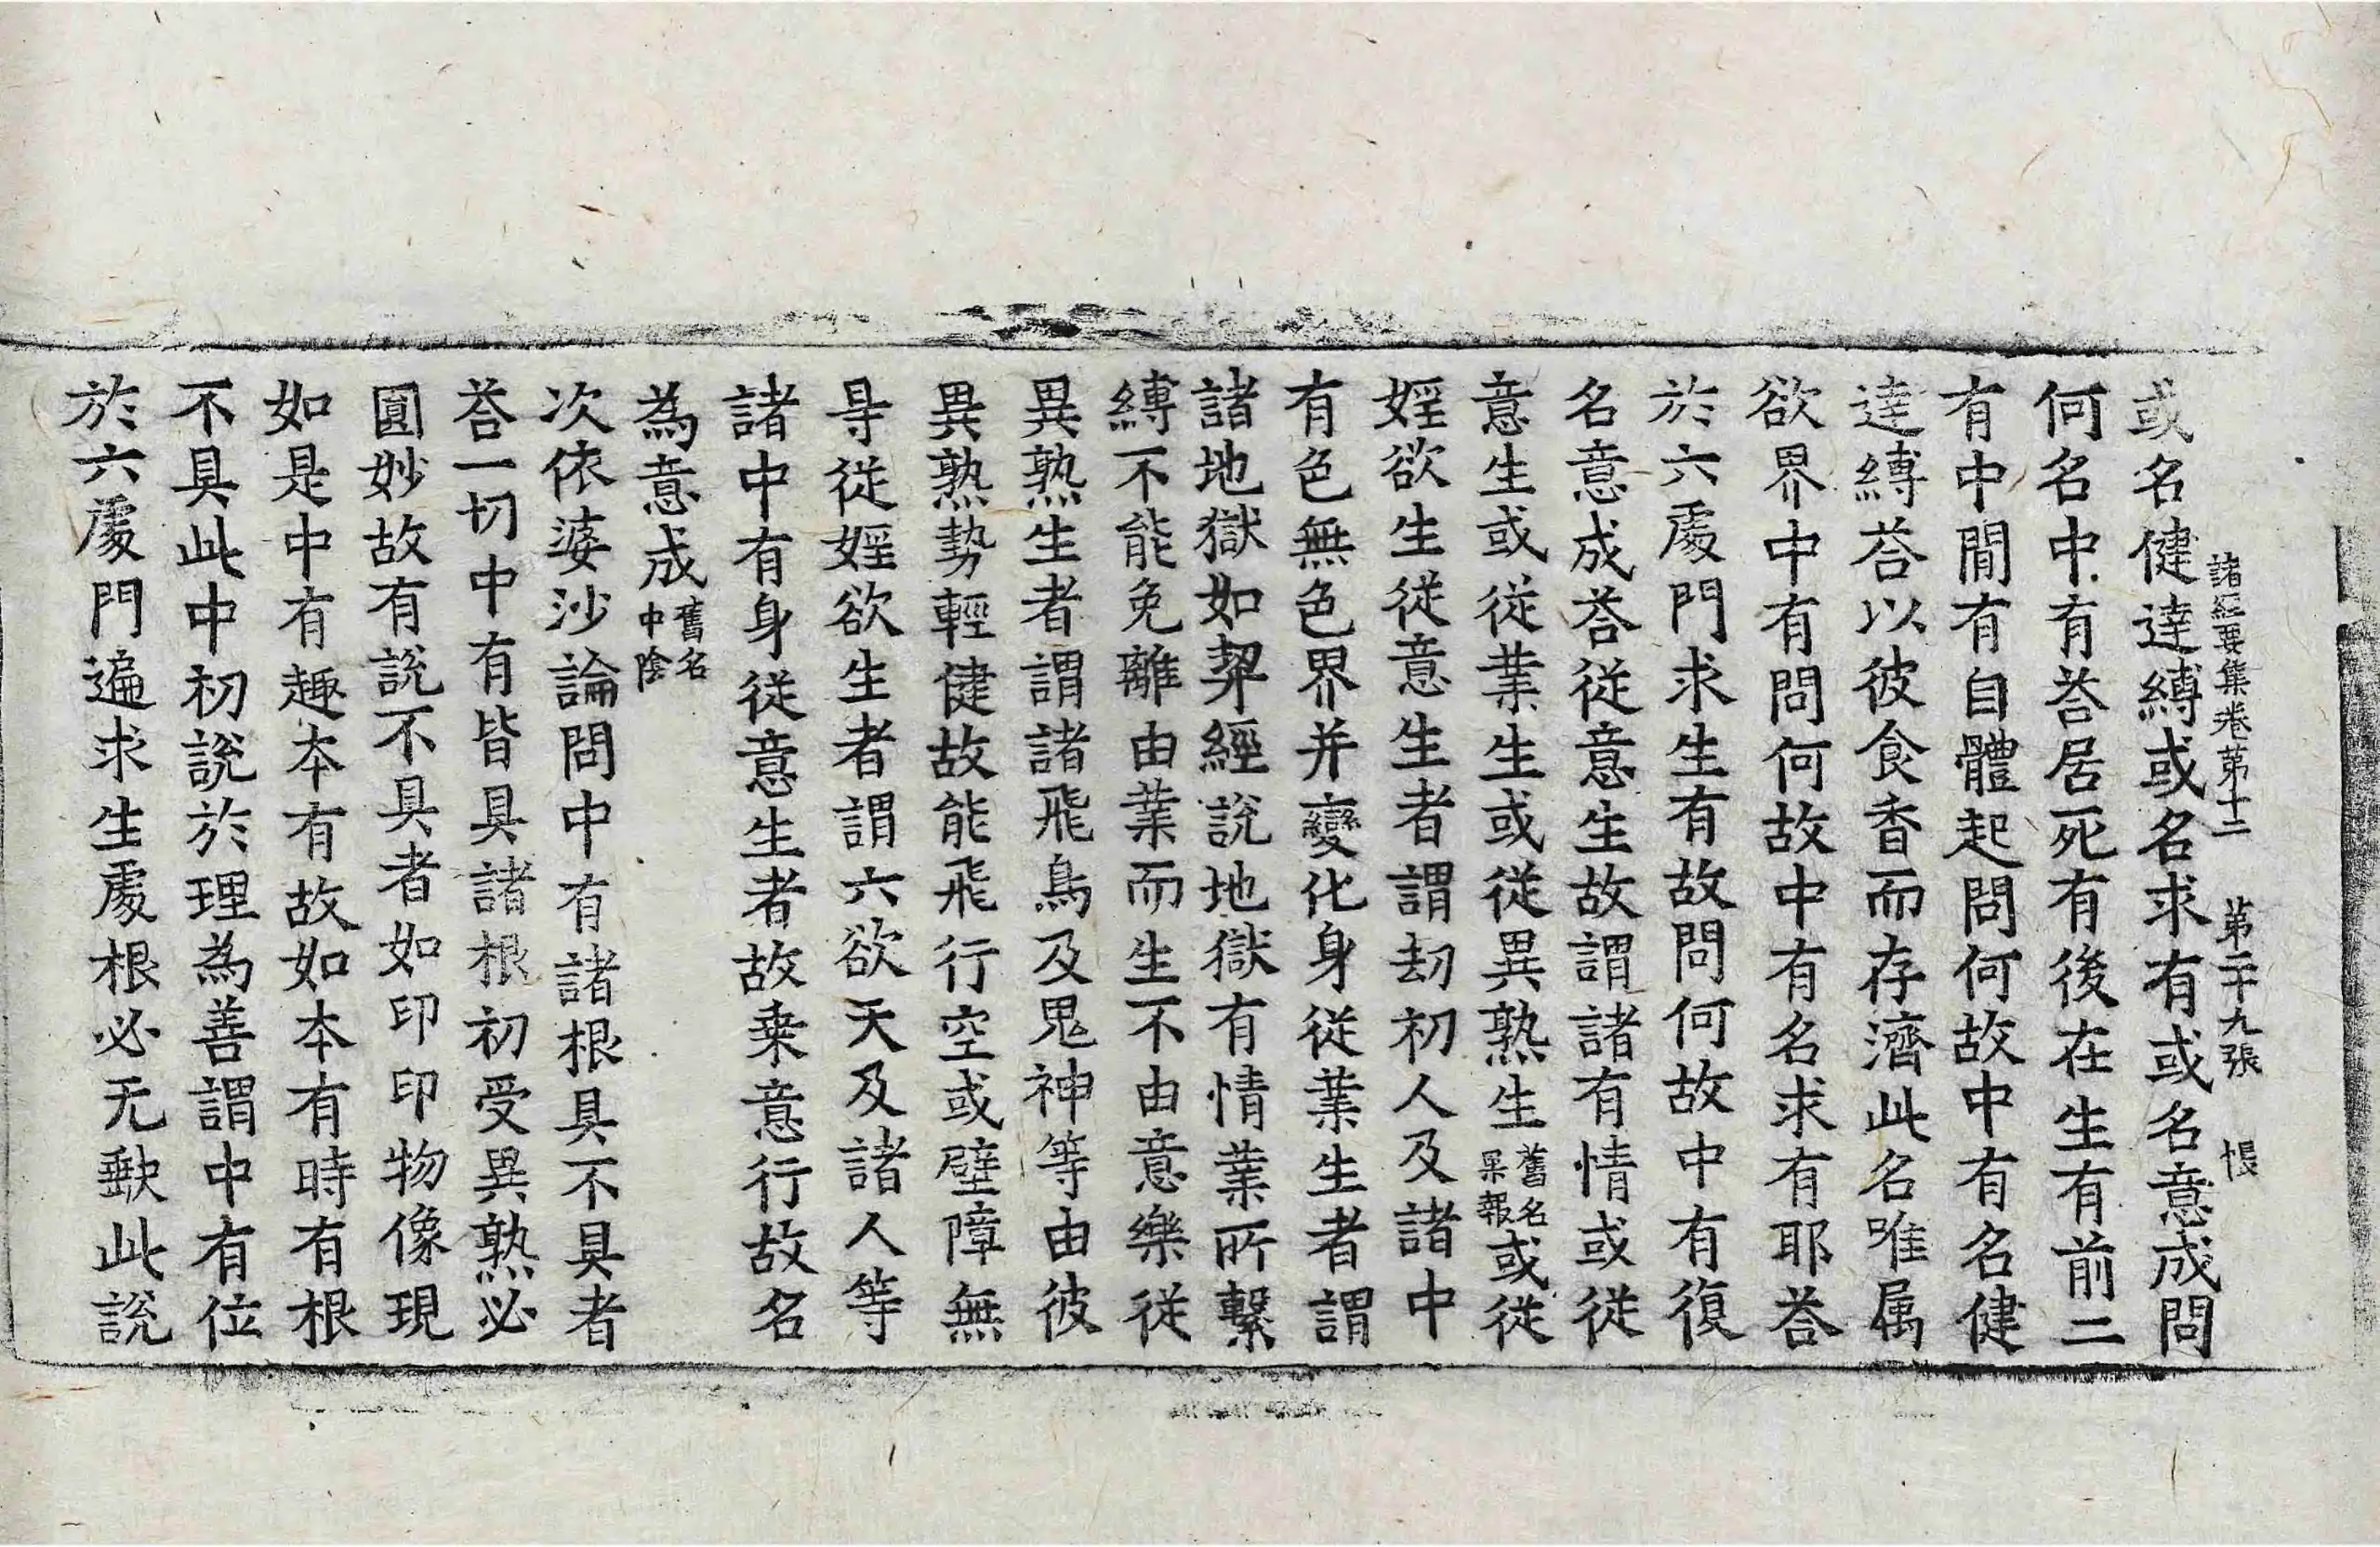 諸經要集卷第十二　第二十九張　悵
或名健達縛或名求有或名意成問
何名中有荅居死有後在生有前二
有中間有自體起問何故中有名健
達縛荅以彼食香而存濟此名唯属
欲界中有問何故中有名求有耶荅
於六處門求生有故問何故中有復
名意成荅從意生故謂諸有情或從
意生或從業生或從異熟生舊名果報或從
婬欲生從意生者謂劫初人及諸中
有色無色界并變化身從業生者謂
諸地獄如契經說地獄有情業所繫
縛不能免離由業而生不由意樂從
異熟生者謂諸飛鳥及鬼神等由彼
異熟勢輕健故能飛行空或壁障無
㝵從婬欲生者謂六欲天及諸人等
諸中有身從意生者故乗意行故名
為意成舊名中陰
次依婆沙論問中有諸根具不具者
荅一切中有皆具諸根初受異熟必
圓妙故有說不具者如印印物像現
如是中有趣本有故如本有時有根
不具此中初說於理為善謂中有位
於六處門遍求生處根必无缺此說